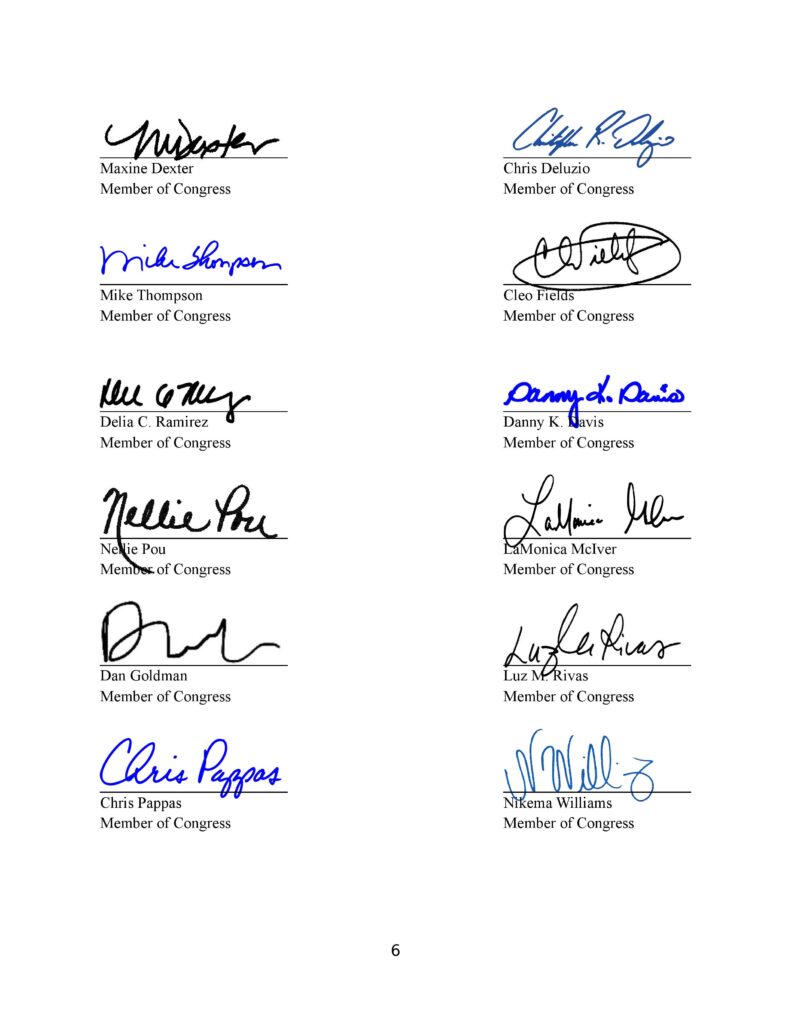 Maxine Dexter
Member of Congress
Christopher R. Deluzio
Chris Deluzio
Member of Congress
Mike Thompson
Mike Thompson
Member of Congress
C Fields
Cleo Fields
Member of Congress
Delia C. Ramirez
Member of Congress
Danny K. Davis
Danny K. Davis
Member of Congress
Nellie Pou
Nellie Pou
Member of Congress
LaMonica
LaMonica McIver
Member of Congress
Dan Goldman
Member of Congress
Luz Rivas
Luz M. Rivas
Member of Congress
Chris Pappas
Chris Pappas
Member of Congress
Nikema Williams
Member of Congress
6